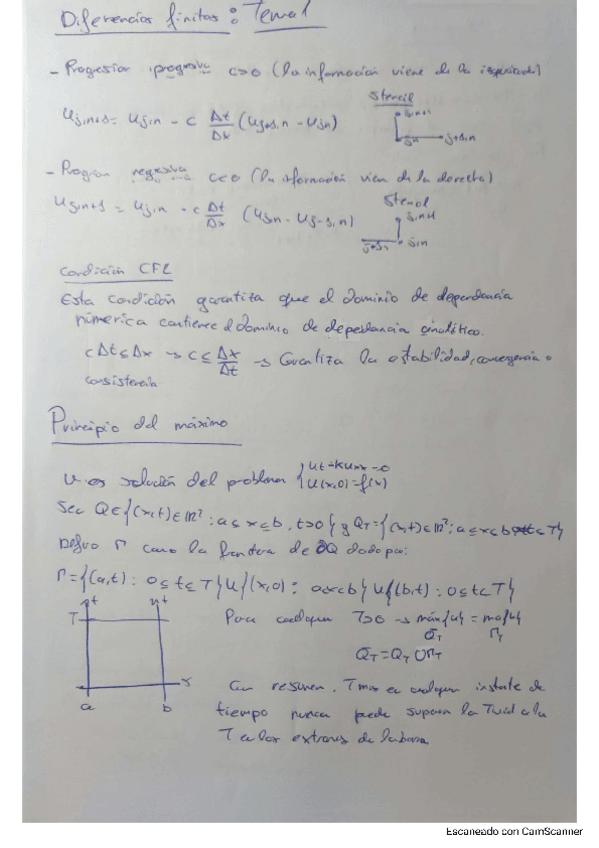 Diferencias finitas: Tema 1
- Progresion progresiva c>0 (la información viene de la izquierda)
Stencil
j,n+1
u j,n+1 = u j,n - c Δt/Δx (u j+1,n - u j,n)
j,n j+1,n
- Progresion regresiva c<0 (la información viene de la derecha)
Stencil
j,n+1
u j,n+1 = u j,n - c Δt/Δx (u j,n - u j-1,n)
j,n
Condición CFL
Esta condición garantiza que el dominio de dependencia
númerica contiene el dominio de dependencia analítico.
c Δt ≤ Δx → c ≤ Δx/Δt → Garantiza la estabilidad, convergencia o
consistencia
Principio del máximo
U es solución del problema { ut - kuxx = 0
u(x,0) = f(x)
Sea Q∈{(x,t)∈ℝ²: a≤x≤b, t>0} y QT={(x,t)∈ℝ²: a≤x≤b, 0≤t≤T}
Defino Γ como la frontera de ∂Q dada por:
Γ={(a,t): 0≤t≤T} U {(x,0): a≤x≤b} U {(b,t): 0≤t≤T}
t t
T
Para cualquier T>0 → máx{u} = max{u}
QT ΓT
QT = QT U ΓT
x
a b
En resumen, T max en cualquier instante de
tiempo nunca puede superar la T inicial a la
T en los extremos de la barra
Escaneado con CamScanner